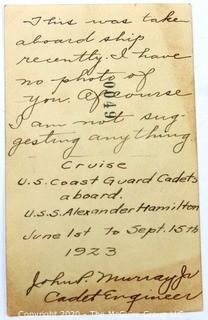 This was taken
aboard ship
recently. I have
no photo of
you. Of course
I am not sug-
gesting anything.
0049
Cruise
U.S. Coast Guard Cadets
aboard.
U.S.S. Alexander Hamilton
June 1st to Sept. 15th
1923
John P. Murray Jr
Cadet Engineer